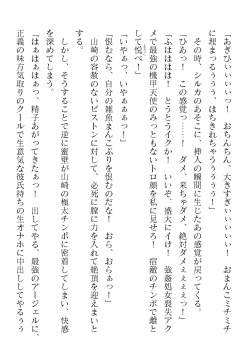 「あぎひぃぃぃぃっ！　おちんちん、大きすぎぃぃぃぃぃ！　おまんこミチミチ
に埋まつるぅぅぅぅ！　はちきれちゃうぅぅぅ！」
その時、シルカのあそこに、挿入の瞬間に生じたあの感覚が戻ってくる。
「ひあっ！　この感覚っ……！　ダメ、来ちゃダメ、絶対ダメぇぇぇぇっ！」
「ふはははは！　とうとうイクか！　いいぞ、盛大にイけ！　強姦処女喪失アク
メで最強の機甲天使のみっともないトロ顔を私に見せろ！　宿敵のチンポで雌と
して悦べ！」
「いやぁっ、いやぁぁぁっ！」
「恨むなら、自分の雑魚まんこぷりを恨むのだな！　おら、おらぁっ！」
山崎の容赦のないピストンに対して、必死に膣に力を入れて絶頂を迎えまいと
する。
しかし、そうすることで逆に蜜壁が山崎の極太チンポに密着してしまい、快感
を深めてしまう。
「はぁはぁはぁっ、精子あがってきたぁっ！　出してやる、最強のアージェルに、
正義の味方気取りのクールで生意気な彼氏持ちの生オナホに中出ししてやるぅぅ